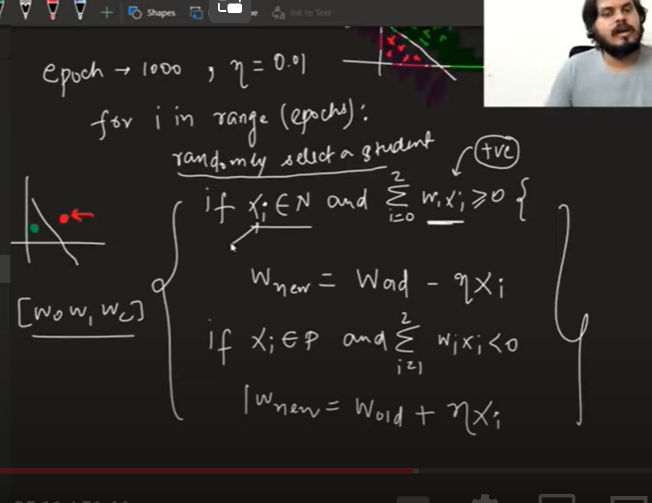 Shapes
Ink to Text
epoch → 1000 , η = 0.01
for i in range (epochs):
randomly select a student
+ve
if xi ∈ N and Σ i=0 2 wixi ≥ 0 {
wnew = wold − ηxi
[w0 w1 w2]
if xi ∈ P and Σ i=1 2 wixi < 0
wnew = wold + ηxi